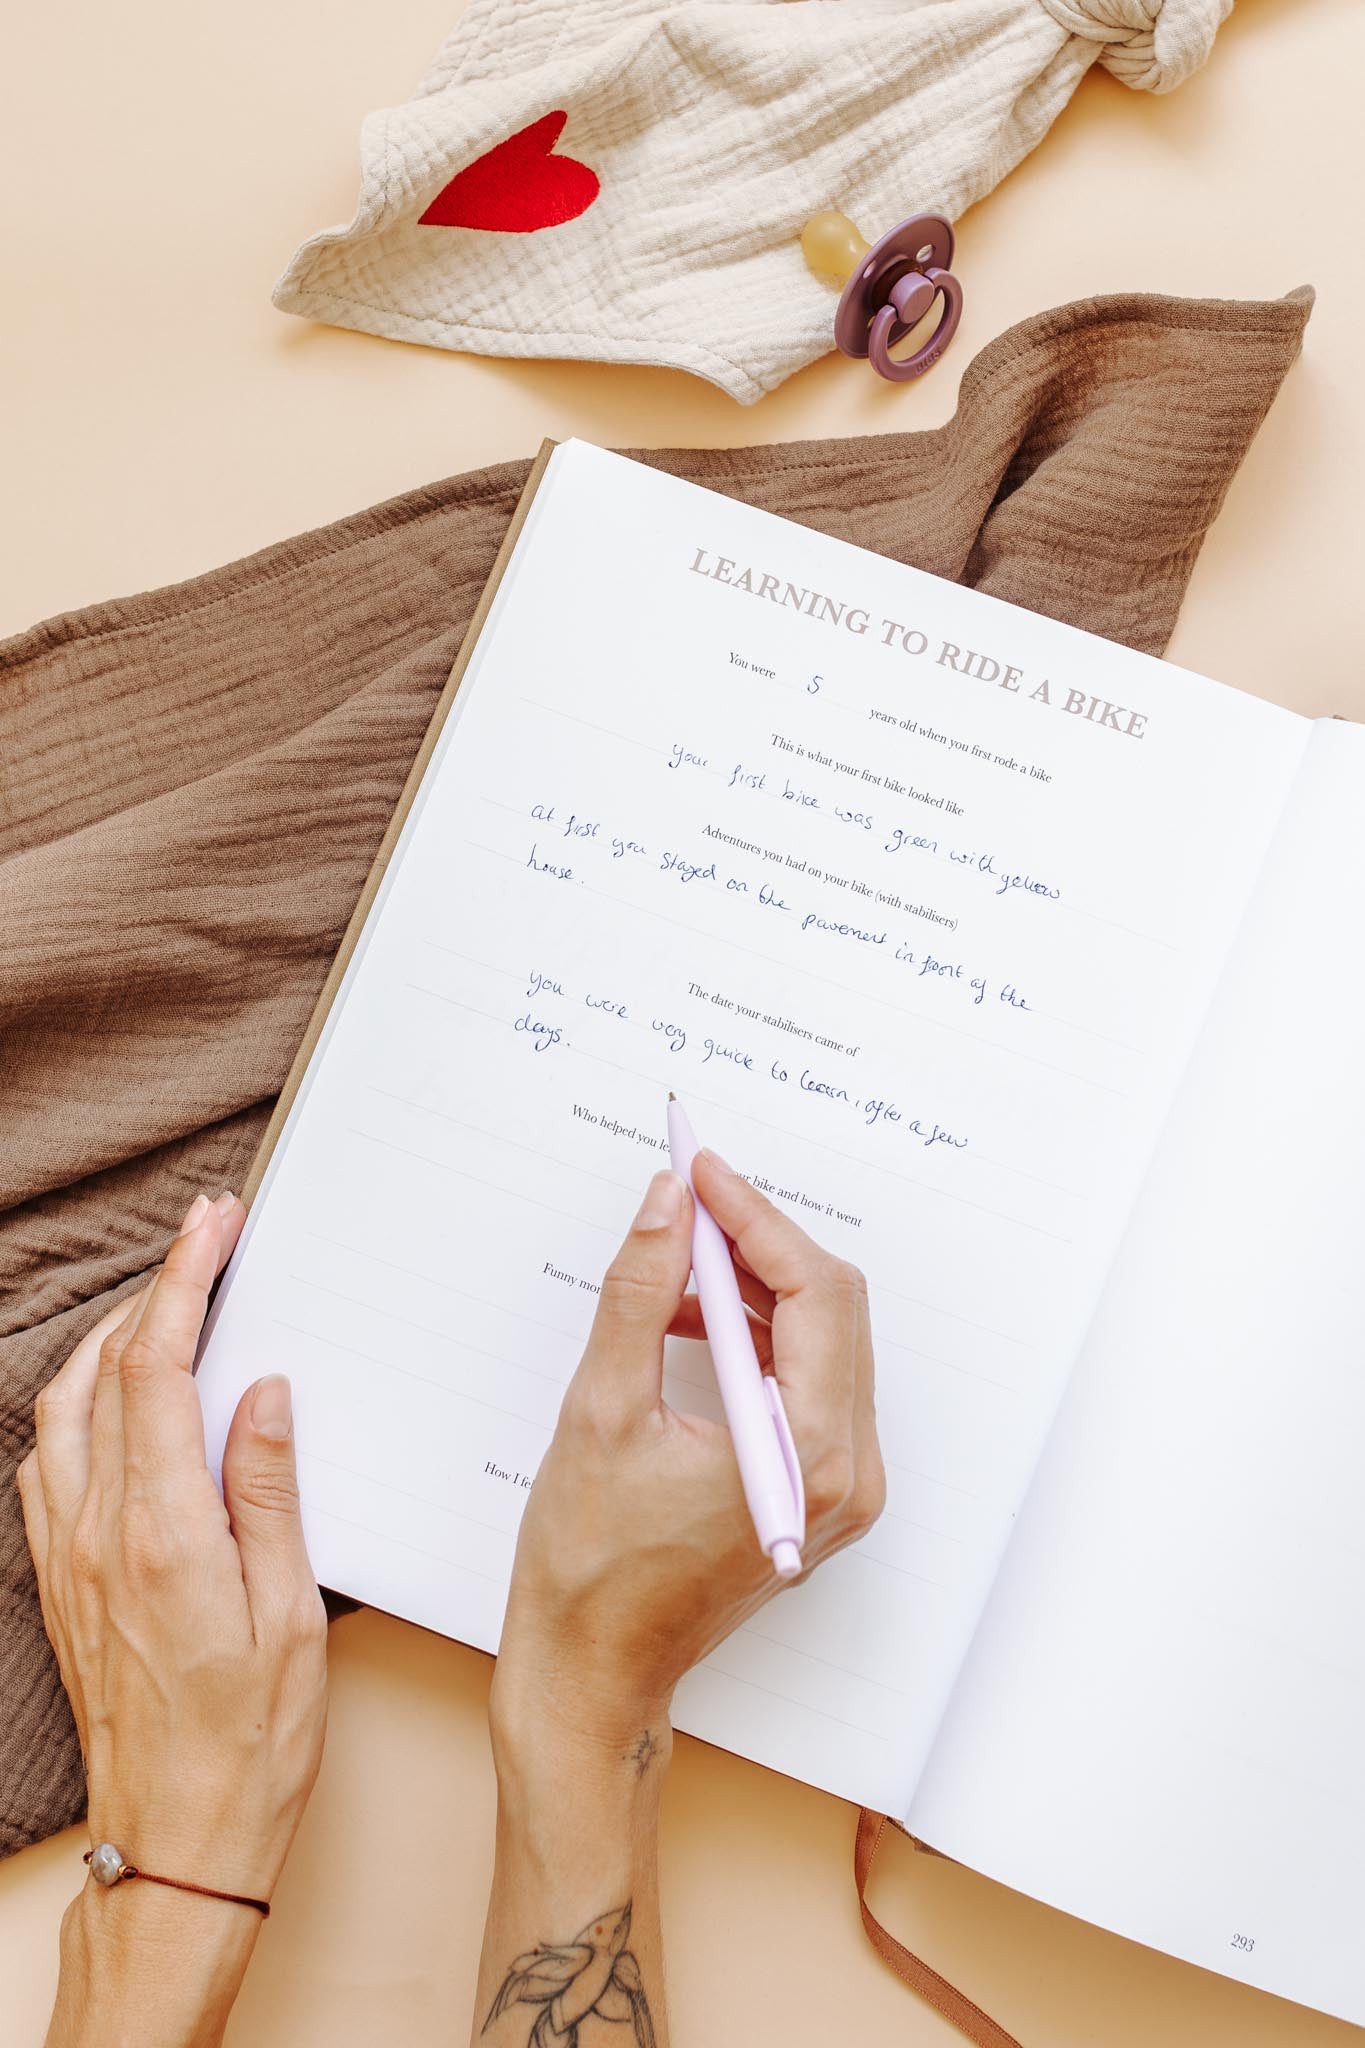 LEARNING TO RIDE A BIKE
You were 5 years old when you first rode a bike
This is what your first bike looked like
your first bike was green with yellow
Adventures you had on your bike (with stabilisers)
at first you stayed on the pavement in front of the
house.
The date your stabilisers came of
you were very quick to learn, after a few
days.
Who helped you your bike and how it went
Funny
How I
293